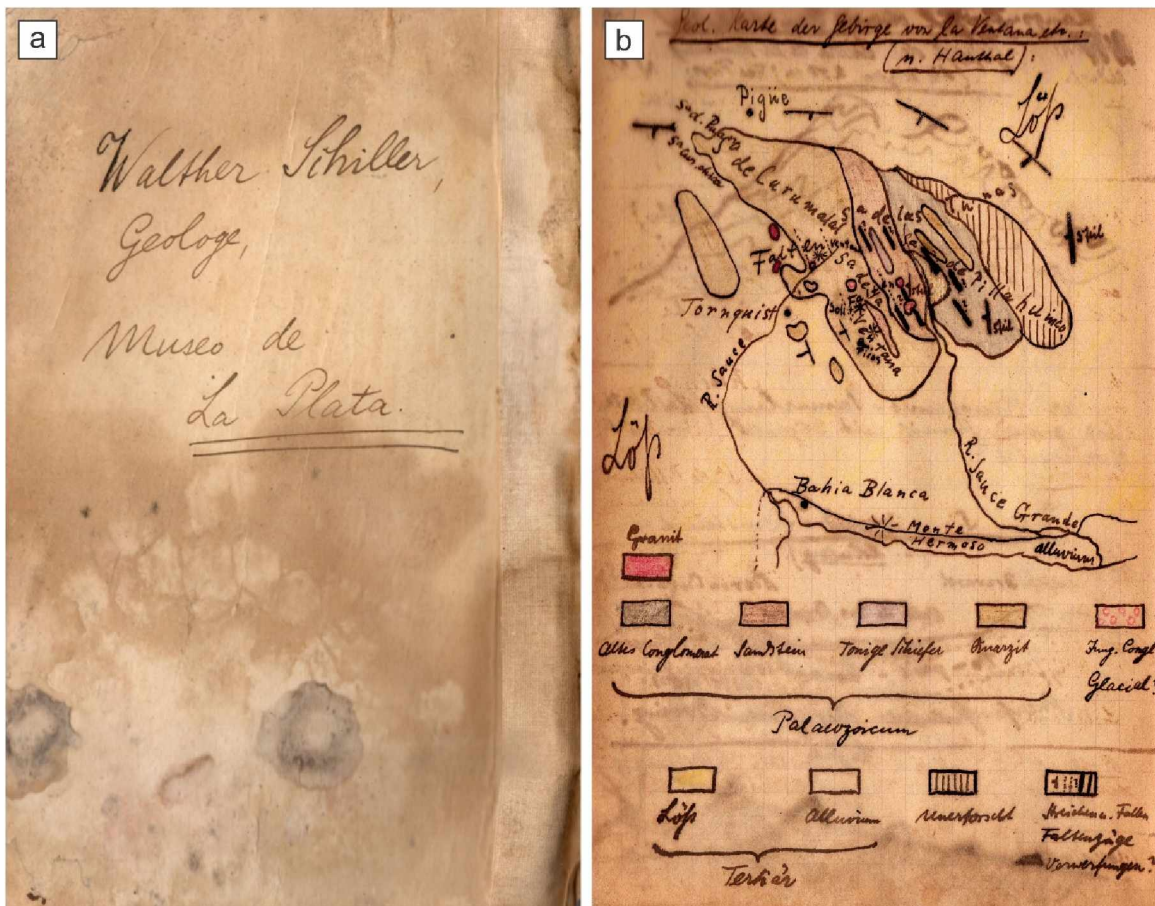 a
Walther Schiller,
Geologe,
Museo de
La Plata.
b
Geol. Karte der Gebirge von la Ventana etc.:
(n. Hauthal):
Pigüe
Löß
de Curumalal
Sa de las
Tunas
Sa de Pillahuinco
Falten
steil
steil
Tornquist
Sa de la
Ventana
R. Sauce
Löß
R. Sauce Grande
Bahia Blanca
Monte
Hermoso
Alluvium
Granit
Altes Conglomerat
Sandstein
Tonige Schiefer
Quarzit
Jung. Congl.
Glacial?
Palaeozoicum
Löß
Alluvium
Unerforscht
Streichen u. Fallen
Faltenzüge
Verwerfungen?
Tertiär